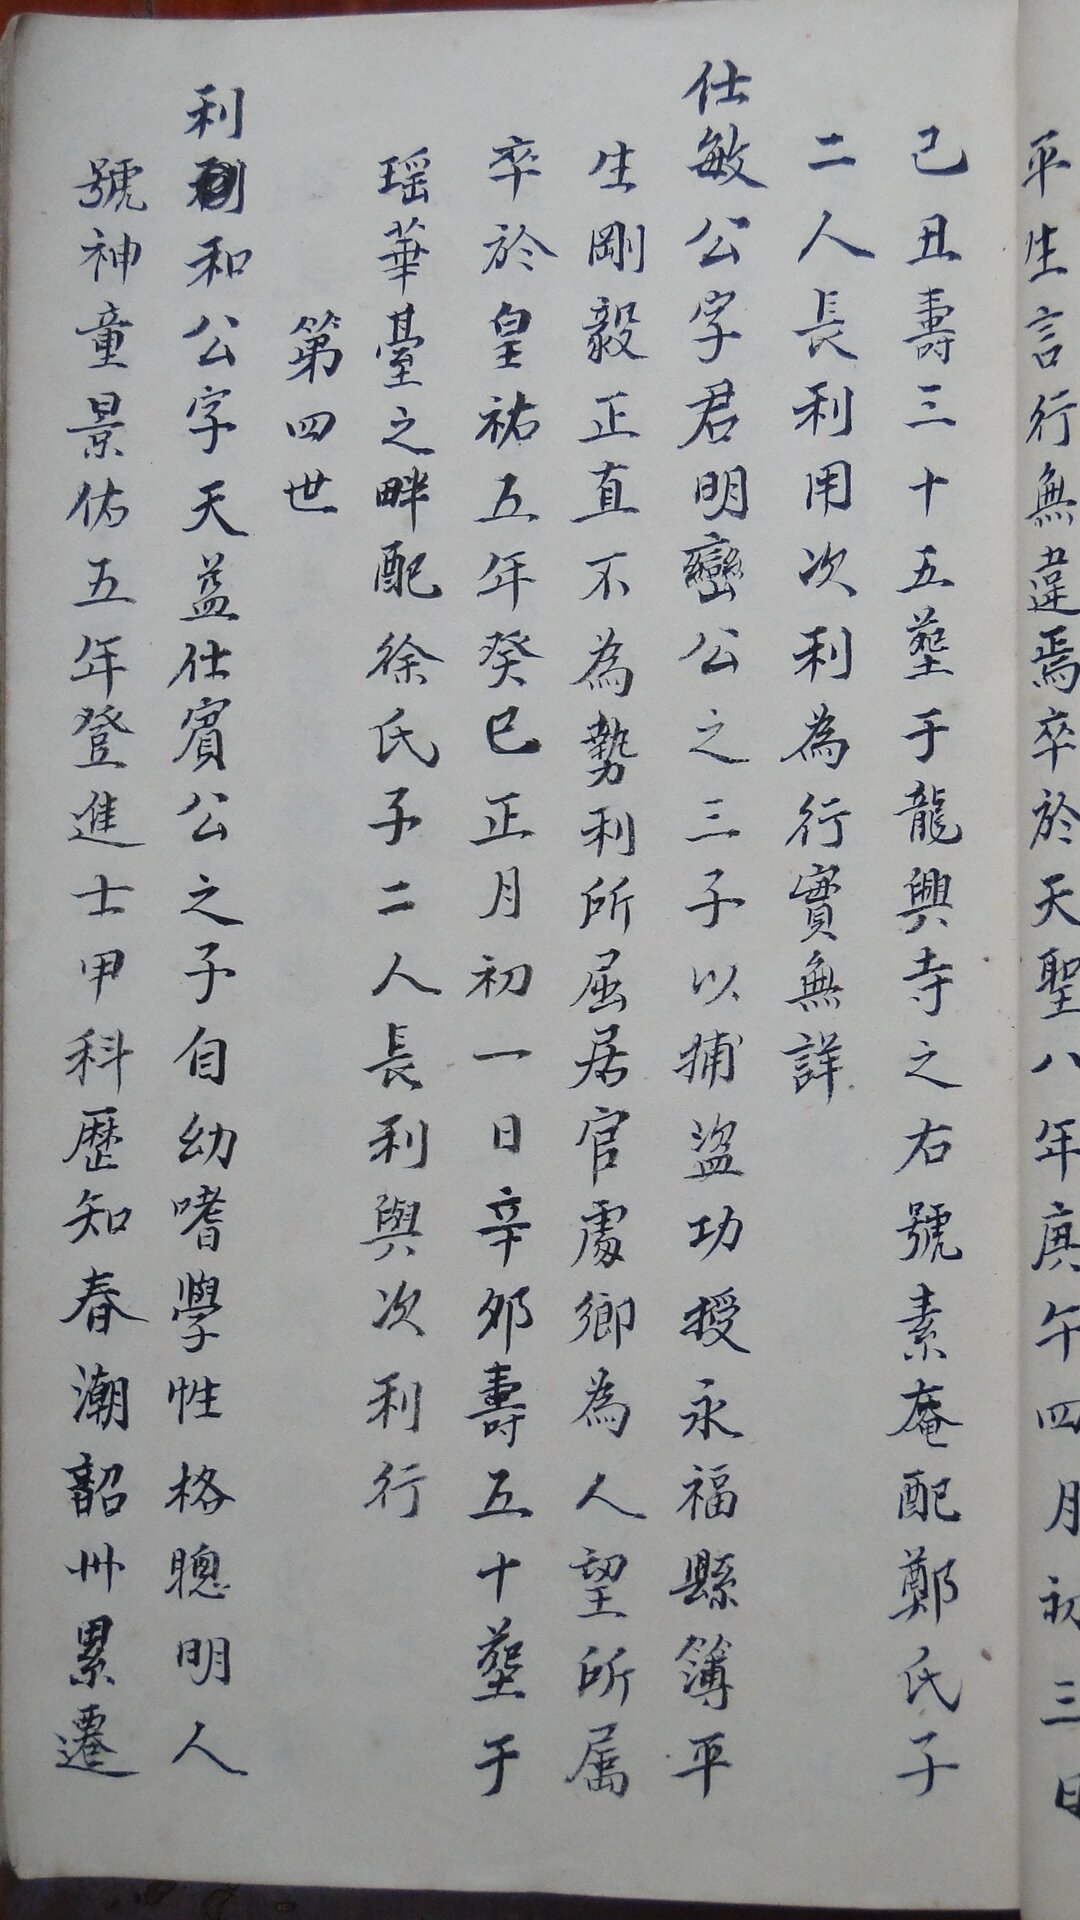 平生言行無違焉卒於天聖八年庚午四月初三日
己丑壽三十五塟于龍興寺之右號素菴配鄭氏子
二人長利用次利為行實無詳
仕敏公字君明巒公之三子以捕盜功授永福縣簿平
生剛毅正直不為勢利所屈居官處鄉為人望所属
卒於皇祐五年癸巳正月初一日辛夘壽五十塟于
瑶華臺之畔配徐氏子二人長利與次利行
第四世
利和公字天益仕賓公之子自幼嗜學性格聰明人
號神童景佑五年登進士甲科歷知春潮韶州累遷